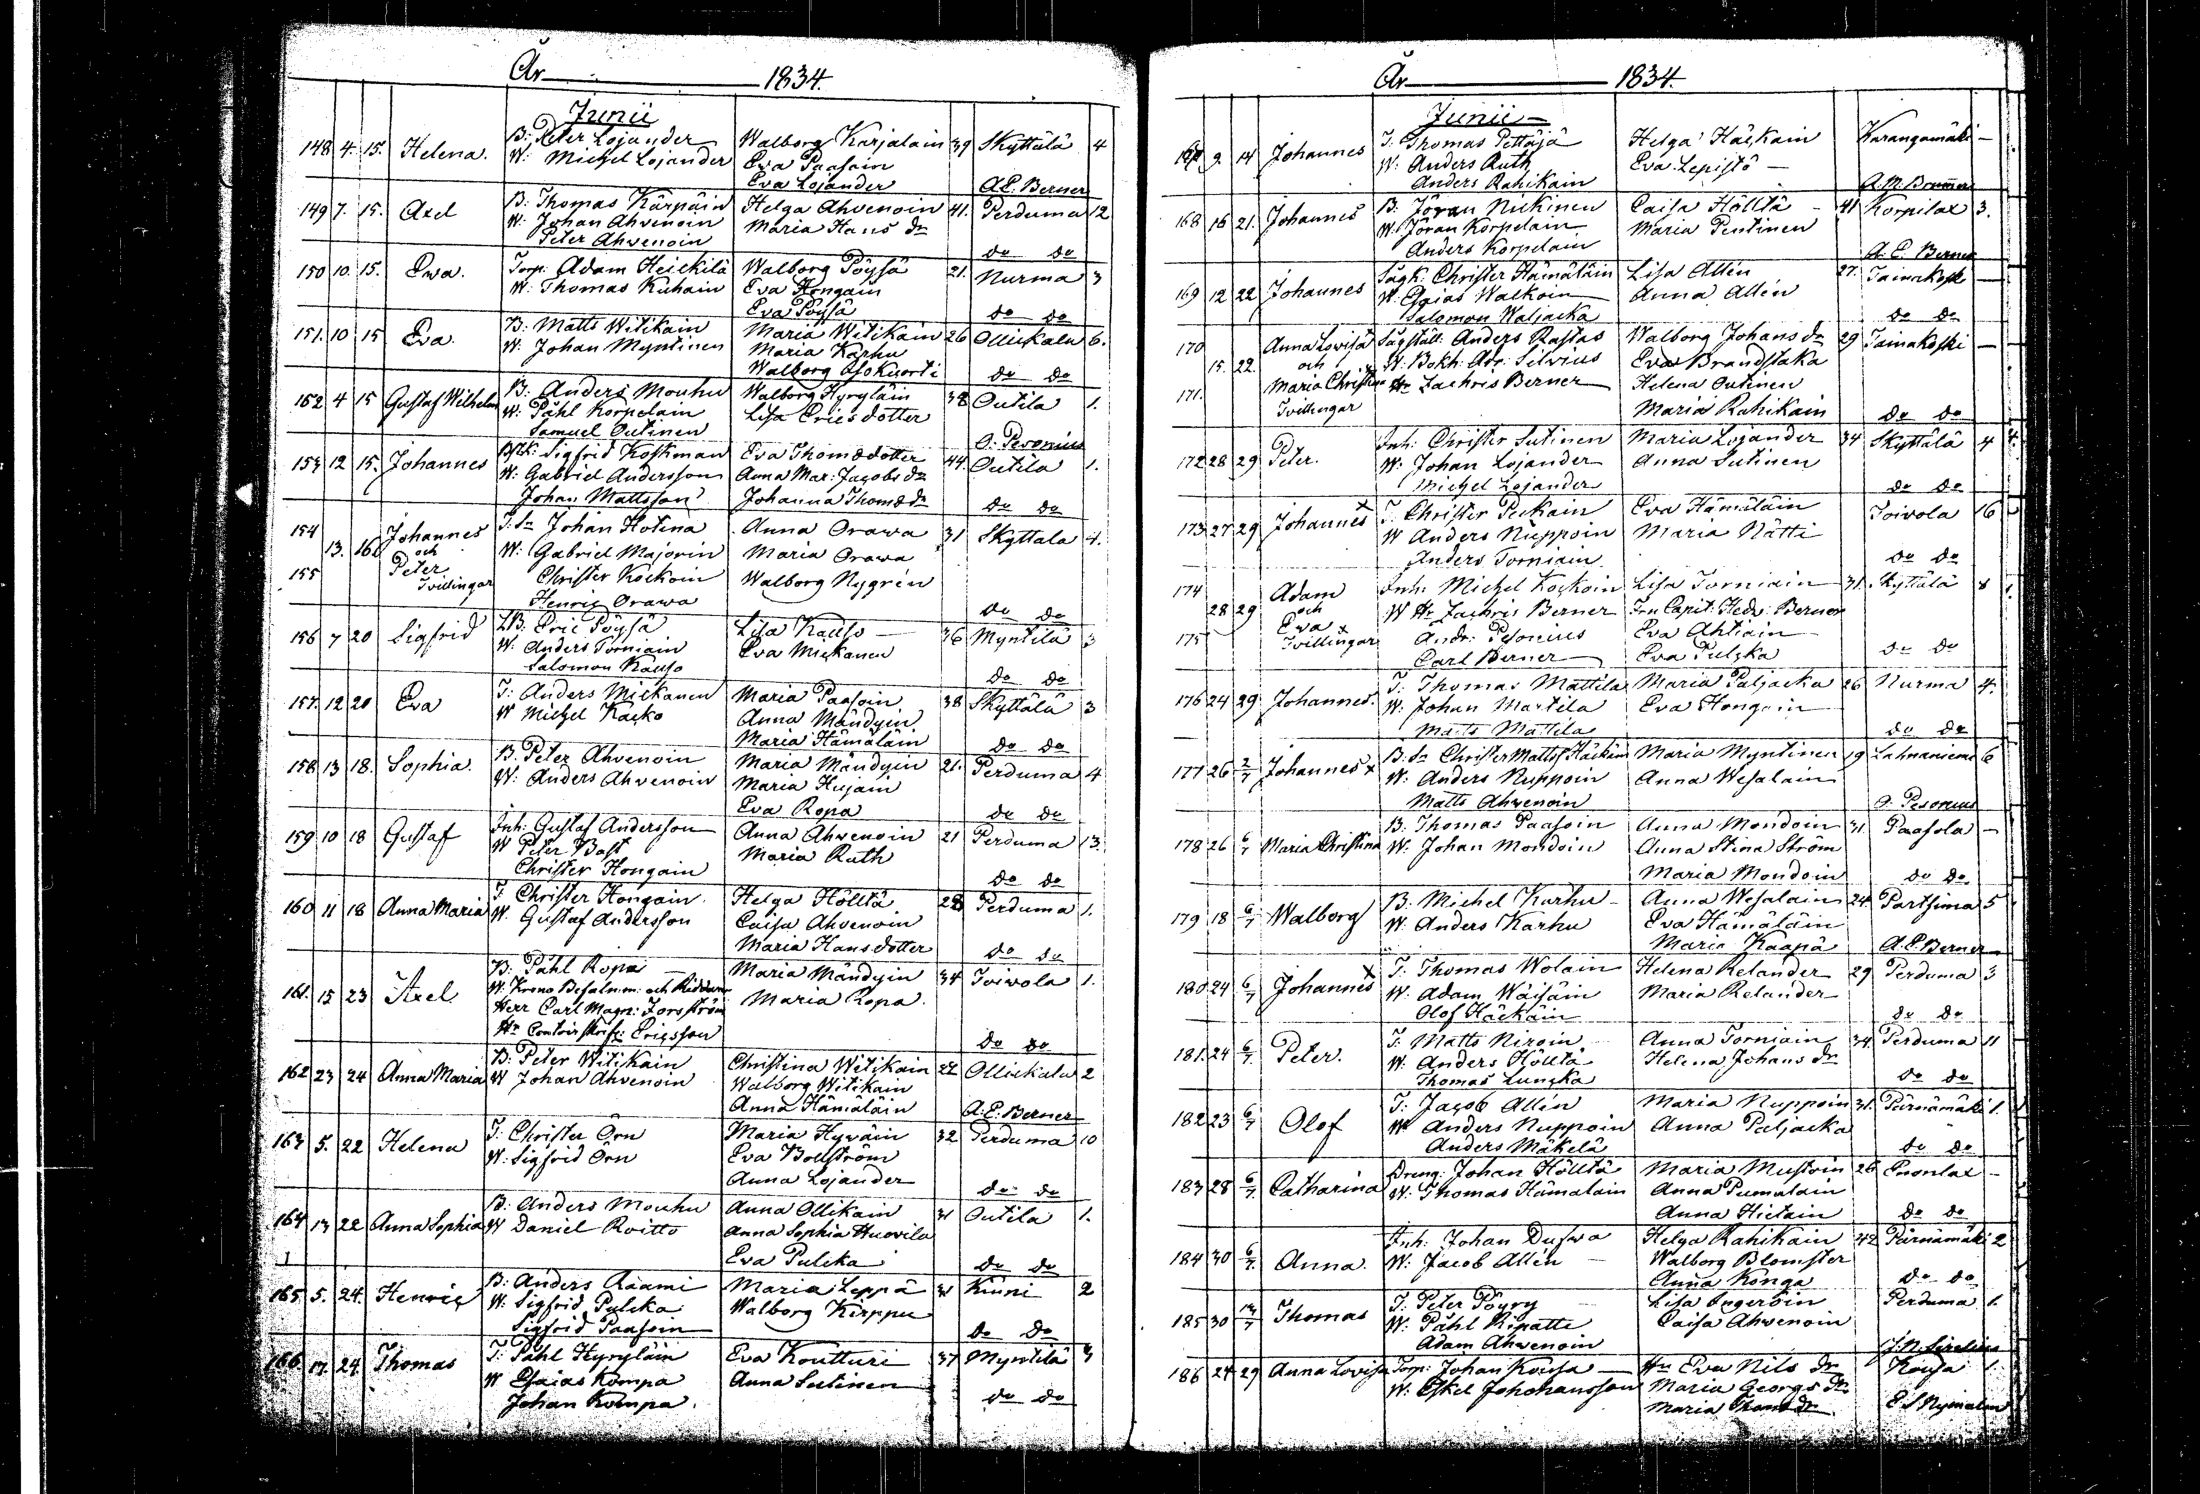 År 1834.
Junii
148 4. 15. Helena. B: Peter Lojander Walborg Karjalain 39 Skyttälä 4
W: Michel Lojander Eva Paasoin
Eva Lojander A.E. Berner
149 7. 15. Axel B: Thomas Kärpäin Helga Ahvenoin 41. Perduma 12
W: Johan Ahvenoin Maria Hans dr
Peter Ahvenoin do do
150 10. 15. Ewa. Torp: Adam Heickilä Walborg Pöysä 21. Nurma 3
W: Thomas Kuhain Eva Hongain
Eva Pöysä do do
151. 10 15 Eva. B: Matts Witikain Maria Witikain 26 Ollickala 6.
W: Johan Myntinen Maria Karhu
Walborg do do
152 4 15 Gustaf Wilhelm B: Anders Mouhu Walborg Hyryläin 38 Outila 1.
W: Påhl Korpelain Lisa Ericsdotter
Samuel Outinen O. Pesonius
153 12 15. Johannes Sigfrid Koskman Eva Thomædotter 44. Outila 1.
W: Gabriel Andersson Anna Mar: Jacobs dr
Johan Mattsson Johanna Thomæ dr do do
154 13. 16. Johannes T. Sn Johan Hotina Anna Orawa 31 Skyttala 4.
och W: Gabriel Majorin Maria Orawa
155 Peter Christer Kockoin Walborg Nygrén
Tvillingar Henric Orawa do do
156 7 20 Sigfrid Eric Pöysä Lisa Kauso 36 Myntilä 3
W: Anders Torniain Eva Mickanen
Salomon Kauso do do
157. 12 20 Eva T: Anders Mickanen Maria Paasoin 38 Skyttälä 3
W Michel Kacko Anna Mändyin
Maria Hämäläin do do
158 13 18. Sophia. B: Peter Ahvenoin Maria Mändyin 21. Perduma 4
W: Anders Ahvenoin Maria Hujain
Eva Ropa do do
159 10 18 Gustaf Inh: Gustaf Andersson Anna Ahvenoin 21 Perduma 13.
W Peter Bast Maria Ruth
Christer Hongain do do
160 11 18 Anna Maria T Christer Hongain Helga Hölltä 28 Perduma 1.
W. Gustaf Andersson Caisa Ahvenoin
Maria Hansdotter do do
161. 15 23 Axel B: Påhl Ropa Maria Mändyin 34 Toivola 1.
W: Krono Befalnm: och Riddaren Maria Ropa
Herr Carl Magn: Forsström
Hr Contoirskrif: Ericsson do do
162 23 24 Anna Maria B: Peter Witikain Christina Witikain 22 Ollickala 2
W Johan Ahvenoin Walborg Witikain
Anna Hämäläin A.E. Berner
163 5. 22 Helena T: Christer Örn Maria Hyväin 32 Perduma 10
W: Sigfrid Örn Eva Bollström
Anna Lojander do do
164 13 22 Anna Sophia B: Anders Mouhu Anna Ollikain 31 Outila 1.
W Daniel Roitto Anna Sophia Huovila
Eva Pulcka do do
165 5. 24. Henric B: Anders Raami Maria Leppä 31 Kinni 2
W. Sigfrid Pulcka Walborg Kirppu
Sigfrid Paasoin do do
166. 17. 24 Thomas T: Påhl Hyryläin Eva Koutturi 37 Myntilä 3
W Esaias Kompa Anna Sutinen
Johan Kompa. do do
År 1834.
Junii
167 9. 14 Johannes T: Thomas Pettäjä Helga Häckäin Karangamäki
W: Anders Ruth Eva Lepistö
Anders Rahikain A.M. Brummer
168 16 21. Johannes B: Jöran Nickinen Caisa Hölltä 41 Korpilax 3.
W. Jöran Korpelain Maria Pentinen
Anders Korpelain A. E. Berner
169 12 22 Johannes Sågk: Christer Hämäläin Lisa Allén 27. Tainakoski
W. Esaias Walkoin Anna Allén
Salomon Waljacka do do
170 15. 22. Anna Lovisa Sågställ: Anders Rastas Walborg Johans dr 29 Tainakoski
och W. Bokh: Adr: Silvius Eva Brandstaka
171. Maria Christina Hr Zachris Berner Helena Outinen
Tvillingar Maria Rahikain do do
172 28 29 Peter. Inh: Christer Sutinen Maria Lojander 34 Skyttälä 4
W. Johan Lojander Anna Sutinen
Michel Lojander do do
173 27 29 Johannes x T: Christer Peckain Eva Hämäläin Toivola 16
W Anders Nuppoin Maria Nätti
Anders Torniain do do
174 28 29 Adam Inh: Michel Kockoin Lisa Torniain 31. Skyttälä 8
och W Hr Zachris Berner Fru Capit: Hedv: Berner
175 Eva x Andr: Pesonius Eva Ahtiain
Tvillingar Carl Berner Eva Pulcka do do
176 24 29 Johannes. T: Thomas Mattila Maria Paljacka 26 Nurma 4.
W: Johan Martila Eva Hongain
Matts Mattila do do
177 26 2/7 Johannes x B: Sn Christer Matts: Häckäin Maria Myntinen 19 Lahnaniemi 6
W: Anders Nuppoin Anna Wesalain
Matts Ahvenoin O. Pesonius
178 26 6/7 Maria Christina B: Thomas Paasoin Anna Mondoin 31. Paasola
W. Johan Mondoin Anna Stina Ström
Maria Mondoin do do
179 18 6/7 Walborg B: Michel Karhu Anna Wesalain 24. Partsima 5
W. Anders Karhu Eva Hämäläin
Maria Kaapä A.E. Berner
180 24 6/7 Johannes x T: Thomas Wolain Helena Relander 29 Perduma 3
W. Adam Wäisäin Maria Relander
Olof Häckäin do do
181. 24 6/7 Peter. T: Matts Niroin Anna Torniain 34. Perduma 11
W. Anders Hölltä Helena Johans dr
Thomas Luncka do do
182 23 6/7 Olof T: Jacob Allén Maria Nuppoin 31. Pärnämäki 1.
W Anders Nuppoin Anna Paljacka
Anders Mäkelä do do
183 28 6/7 Catharina Dreng: Johan Hölltä Maria Mustoin 26
W: Thomas Hämälain Anna Pumalain
Anna Hietain do do
184 30 6/7 Anna. Inh: Johan Dufva Helga Rahikain 42 Pärnämäki 2
W: Jacob Allén Walborg Blomster
Anna Konga do do
185 30 13/7 Thomas T: Peter Pöyry Lisa Ingeroin Perduma 1.
W: Påhl Ripatti Caisa Ahvenoin
Adam Ahvenoin J.N. Sirelius
186 24 29 Anna Lovisa Torp: Johan Kousa Hu Eva Nils dr Kousa 1
W. Eskel Johohansson Maria Georgs dr
Maria Thoms dr